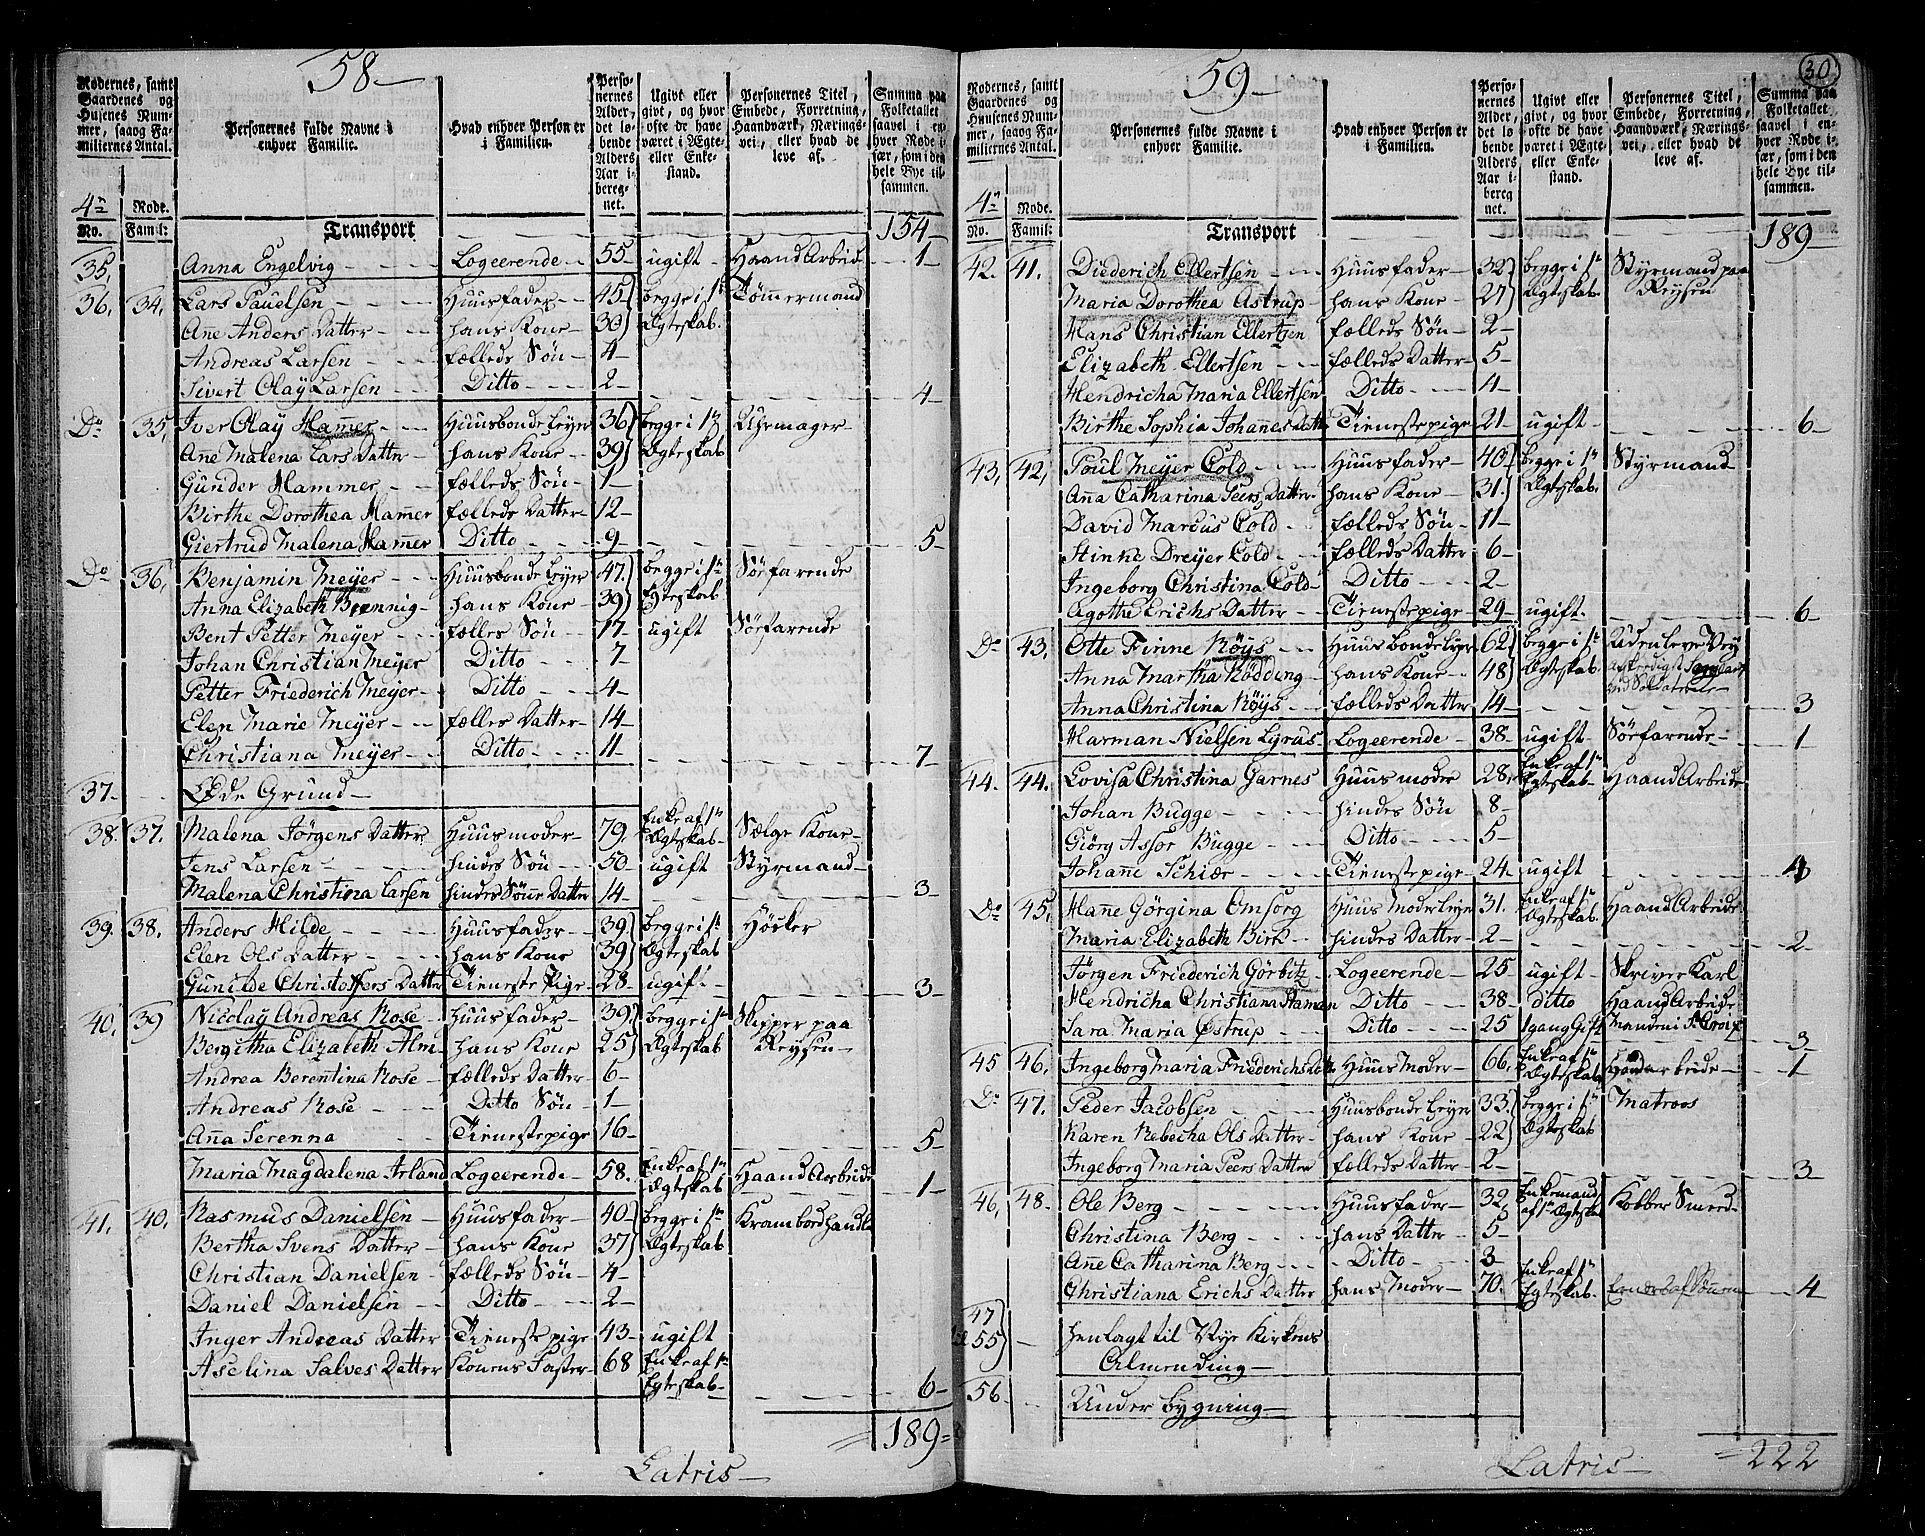 58
Rodernes, samt Gaardenes og Husenes Nummer, saavg Familiernes Antal.
Personernes fulde Navne i enhver Familie.
Hvad enhver Person er i Familien.
Personernes Alder, det løbende Alders Aar iberegnet.
Ugivt eller givt, og hvor ofte de have været i Ægte- eller Enkestand.
Personernes Titel, Embede, Forretning, Haandværk, Næringsvei, eller hvad de leve af.
Summa paa Folketallet saavel i enhver Rode især, som i den hele Bye tilsammen.
4n Rode.
No. Famil: Transport 154
35, Anna Engelvig Logeerende 55 ugift Haand Arbeid 1
36, 34, Lars Pauelsen Huusfader 45 begge i 1te Tömmermand
Ane Anders Datter hans Kone 30 Ægteskab.
Andreas Larsen fælleds Søn 4
Sivert Olay Larsen Ditto 2 4
Do 35, Iver Olay Hamer Huusbonde Leyer 36 begge i 1te Uhrmager
Ane Malena Lars Datter hans Kone 39 Ægteskab
Gunder Hammer fælleds Søn 1
Birthe Dorothea Hamer fælleds Datter 12
Giertrud Malena Hamer Ditto 9 5
Do 36, Benjamin Meyer Huusbonde Leyer 47. begge i 1te Söefarende
Anna Elizabeth Bremnig hans Kone 39 Egteskab
Bent Petter Meyer fælles Søn 17 ugift Söefarende
Johan Christian Meyer Ditto 7
Petter Friederich Meyer Ditto 4
Elen Marie Meyer fælles Datter 14
Christiana Meyer Ditto 11 7
37 Øde Grund
38. 37. Malena Jörgens Datter Huusmoder 79. Enke af 1te Ægteskab Sælge Kone
Jens Larsen hindes Søn 50 ugift Styrmand
Malena Christina Larsen hindes Sønne Datter 14 3
39. 38. Anders Hilde Huusfader 39 begge i 1te Höcker
Elen Ols Datter hans Kone 39 Ægteskab
Gunilde Christoffers Datter Tieneste Pige 28 ugift 3
40. 39 Nicolay Andreas Rose Huusfader 39 begge i 1te Skipper paa
Bergitha Elizabeth Alm hans Kone 25 Ægteskab Reysen
Andrea Berentina Rose fælleds Datter 6
Andreas Rose Ditto Søn 1
Aña Serenna Tienestepige 16 5
Maria Magdalena Irland Logeerende 58. Enke af 1te Ægteskab Haand Arbeide 1
41. 40. Rasmus Danielsen Huusfader 40 begge i 1te Krambordhandle
Bertha Svens Datter hans Kone 37 Ægteskab
Christian Danielsen fælleds Søn 4
Daniel Danielsen Ditto 2
Inger Andreas Datter Tieneste pige 43 ugift
Aselina Salves Datter Konens Faster 68 Enke af 1te Egteskab 6
189
Latris
59
30
Rodernes, samt Gaardenes og Husenes Nummer, saavg Familiernes Antal.
Personernes fulde Navne i enhver Familie.
Hvad enhver Person er i Familien.
Personernes Alder, det løbende Alders Aar iberegnet.
Ugivt eller givt, og hvor ofte de have været i Ægte- eller Enkestand.
Personernes Titel, Embede, Forretning, Haandværk, Næringsvei, eller hvad de leve af.
Summa paa Folketallet saavel i enhver Rode især, som i den hele Bye tilsammen.
4n Rode.
No. Famil: Transport 189
42. 41. Diederich Ellertsen Huusfader 32 begge i 1te Styrmand paa
Maria Dorothea Astrup hans Kone 27 Ægteskab Reysen
Hans Christian Ellertzen fælleds Søn 2
Elizabeth Ellertsen fælleds Datter 5
Hendricha Maria Ellertsen Ditto 4
Birthe Sophia Johanes Datter Tienestepige 21 ugift 6
43, 42, Poul Meyer Cold Huusfader 40 begge i 1te Styrmand
Aña Catharina Peers Datter hans Kone 31. Ægteskab.
David Marcus Cold fælleds Søn 11
Stinne Dreyer Cold fælleds Datter 6
Ingeborg Christina Cold Ditto 2
Agothe Erichs Datter Tienestepige 29 ugift. 6
Do 43, Otte Finne Röys Huusbonde Leyer 62 begge i 1te
Anna Martha Rödding hans Kone 48 Ægteskab
Anna Christina Röys fælleds Datter 14 3
Harman Nielsen Lyrus Logeerende 38 ugift Söefarende 1
44. 44. Lovisa Christina Garnes Huusmoder 28. Enke af 1te Egteskab Haand Arbeide
Johan Bugge hindes Søn 8
Giörg Assor Bugge Ditto 5
Johañe Schiær Tienestepige 24 ugift 4
Do 45, Hañe Görgina Omsorg Huus Moder Leyer 31. Enke af 1te Ægteskab Haand Arbeide
Maria Elizabeth Birk hindes Datter 2 2
Jörgen Friederich Görbitz Logeerende 25 ugift Skriver Karl
Hendricha Christiana Haman Ditto 38 ditto Haand Arbeide
Sara Maria Østrup Ditto 25 1 gang Gift Manden i St Croix 3
45 46. Ingeborg Maria Friederichs Datter Huus Moder 66. Enke af 1te Ægteskab Haandarbeide 1
Do 47. Peder Jacobsen Huusbonde Leyer 33. begge i 1te Matroos
Karen Rebecha Ols Datter hans Kone 22 Ægteskab
Ingeborg Maria Peers Datter fælleds Datter 2 3
46, 48. Ole Berg Huusfader 32 Enkemand af 1te Ægteskab Kobber Smeed
Christina Berg hans Datter 5
Añe Catharina Berg Ditto 3
Christiana Erichs Datter hans Moder 70. Enke af 1te Egteskab 4
47
55 henlagt til Nye Kirkens
Almending
56 Under bygning
222
Latris